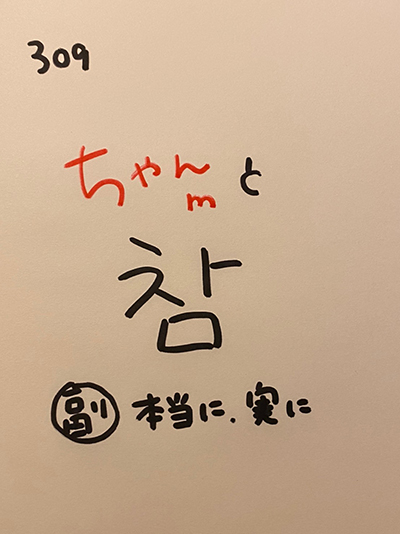 309
ちゃんと
m
참
副 本当に、実に